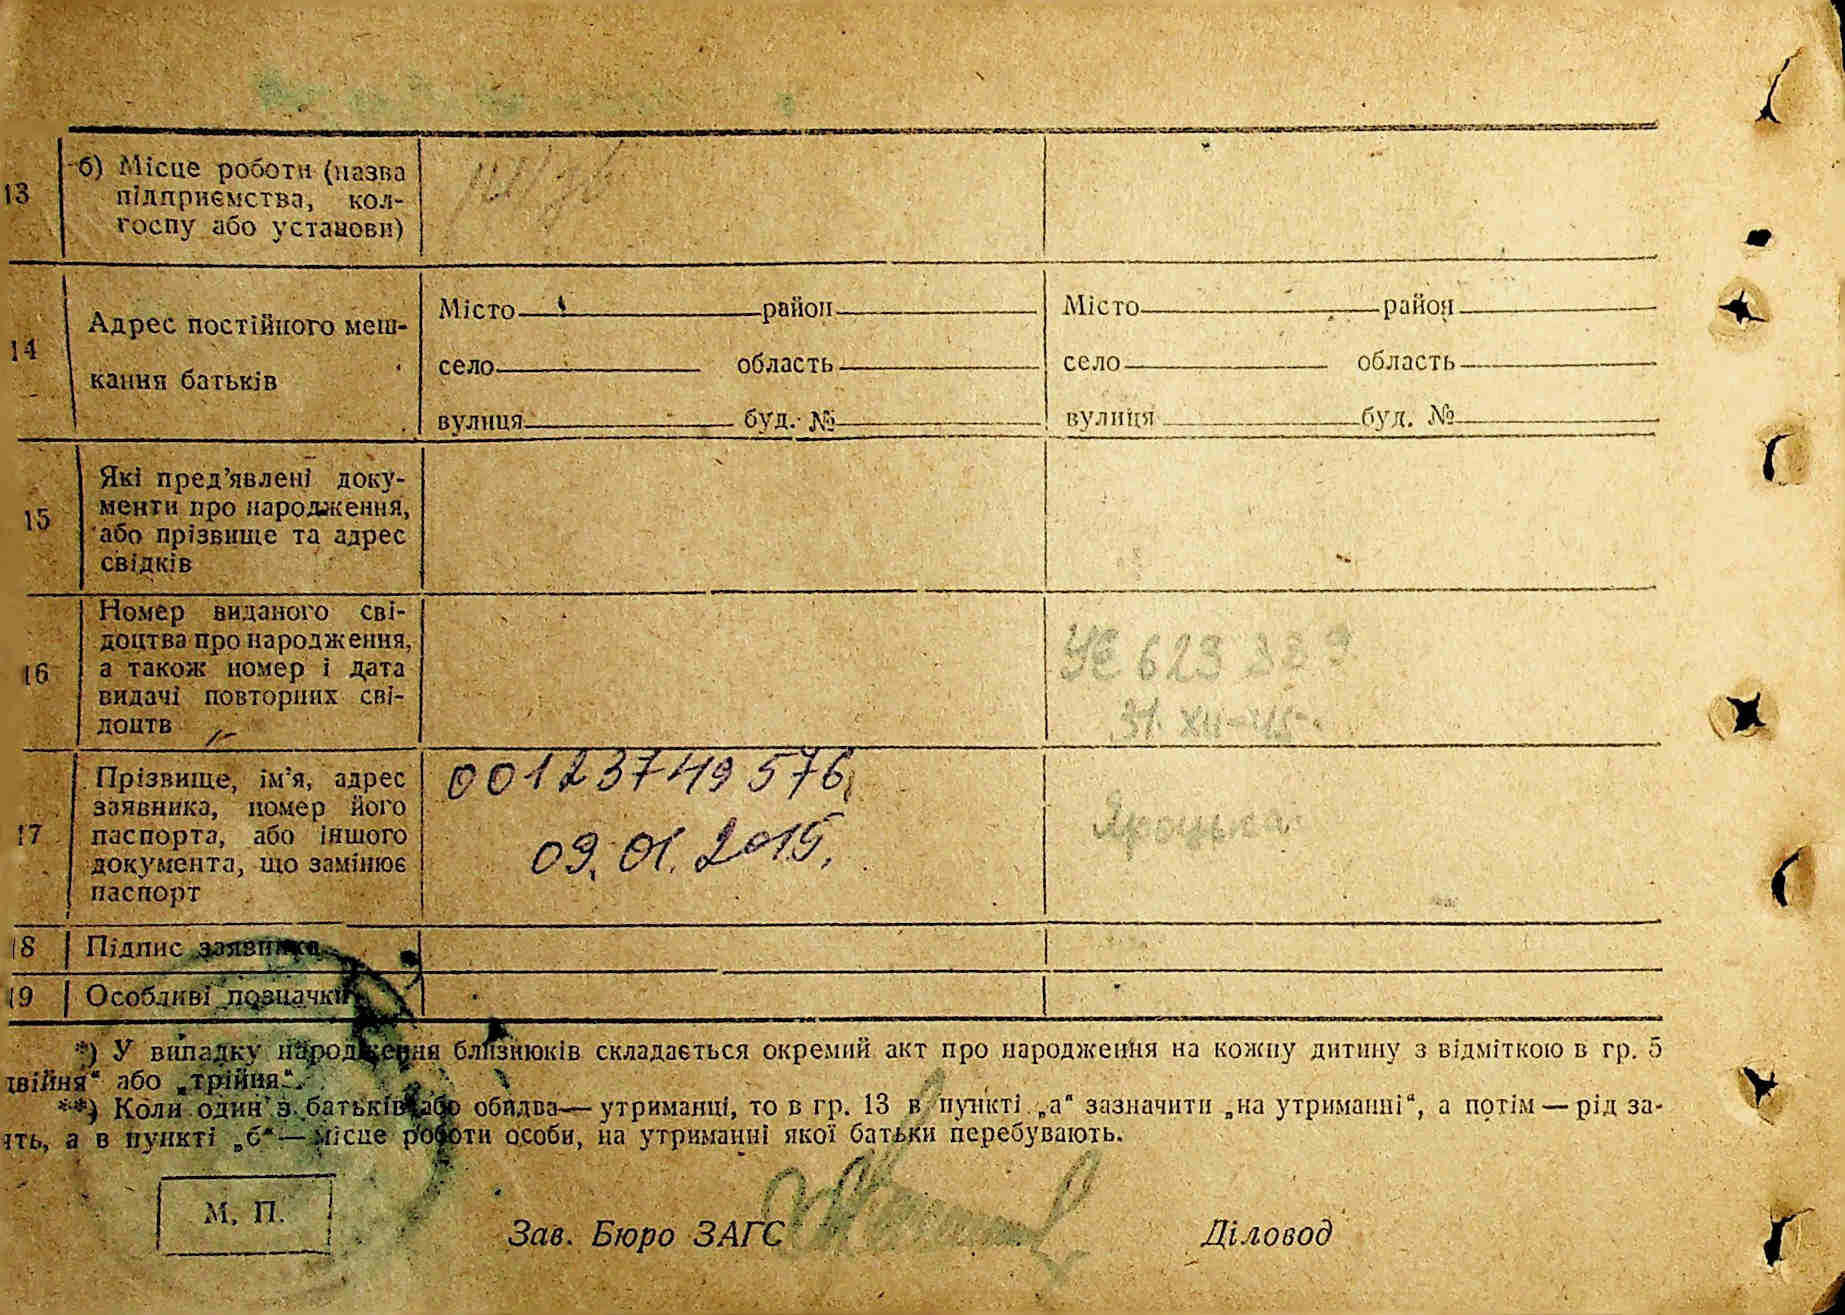 13
б) Місце роботи (назва
підприємства, кол-
госпу або установи)
14
Адрес постійного меш-
кання батьків
Місто район
село область
вулиця буд. №
Місто район
село область
вулиця буд. №
15
Які пред’явлені доку-
менти про народження,
або прізвище та адрес
свідків
16
Номер виданого сві-
доцтва про народження,
а також номер і дата
видачі повторних сві-
доцтв
УЄ 623 339
31. XII-45.
17
Прізвище, ім’я, адрес
заявника, номер його
паспорта, або іншого
документа, що замінює
паспорт
00123749576,
09.01.2015.
Яроцька
18 Підпис заявника
19 Особливі позначки
*) У випадку народження близнюків складається окремий акт про народження на кожну дитину з відміткою в гр. 5
двійня“ або „трійня“.
**) Коли один з батьків або обидва — утриманці, то в гр. 13 в пункті „а“ зазначити „на утриманні“, а потім — рід за-
ять, а в пункті „б“ — місце роботи особи, на утриманні якої батьки перебувають.
М. П.
Зав. Бюро ЗАГС
Діловод